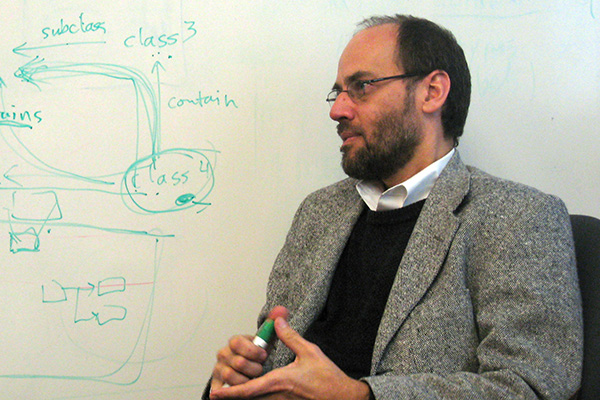 subclass
class 3
contain
class 4